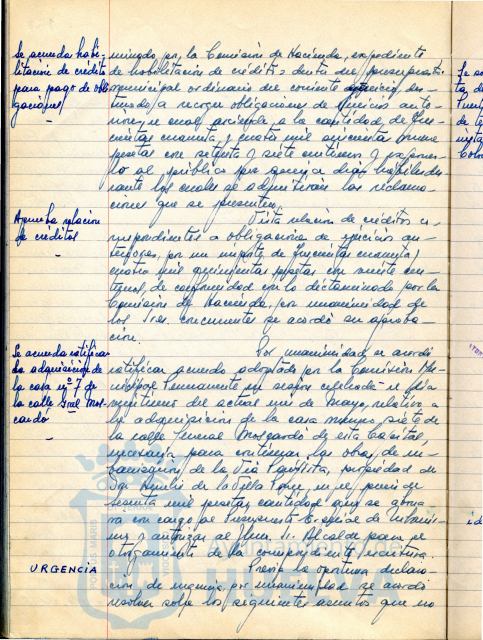 Se acuerda habi-
litación de crédito
para pago de obli-
gaciones
minado por la Comisión de Hacienda, expediente
de habilitación de créditos dentro del presupuesto
municipal ordinario del corriente ejercicio, des-
tinado a recoger obligaciones de ejercicios ante-
riores, el cual asciende a la cantidad de
cientas cuarenta y cuatro mil quinientas
pesetas con setenta y siete céntimos y exponer-
lo al público por quince días hábiles du-
rante los cuales se admitirán las reclama-
ciones que se presenten.
Aprueba relación
de créditos
Vista relación de créditos co-
rrespondientes a obligaciones de ejercicios an-
teriores, por un importe de
cuatro mil quinientas pesetas con veinte cen-
timos, de conformidad con lo dictaminado por la
Comisión de Hacienda, por unanimidad de
los Sres. concurrentes se acordó su aproba-
ción.
Se acuerda ratificar
la adquisición de
la casa nº 7 de
la calle Gral Mos-
cardó
Por unanimidad se acordó
ratificar acuerdo adoptado por la Comisión Mu-
nicipal Permanente en sesión celebrada el día
veintiuno del actual mes de Mayo, relativo a
la adquisición de la casa número siete de
la calle General Moscardó de esta Capital,
necesaria para continuar las obras de ur-
banización de la Vía Paisajista, propiedad de
Don de la Villa en el precio de
sesenta mil pesetas, cantidad que se abona-
rá con cargo al Presupuesto Especial de Urbanis-
mo y autorizar al Ilmo. Sr. Alcalde para el
otorgamiento de la correspondiente escritura.
URGENCIA
Previa la oportuna declara-
ción de urgencia por unanimidad se acordó
resolver sobre los siguientes asuntos que no
HUELVA